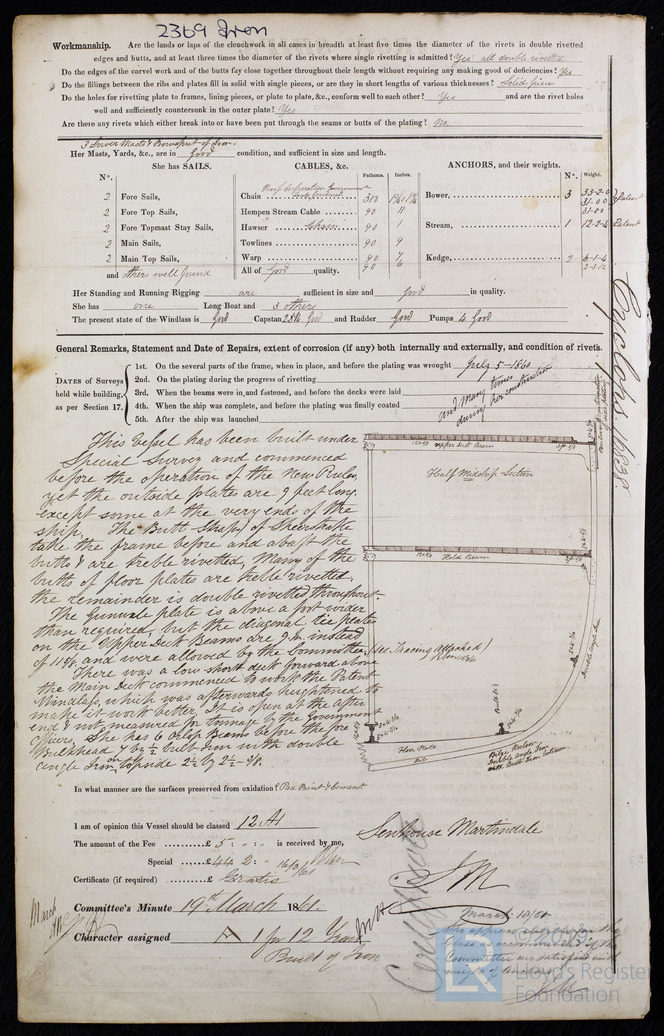 2369 Iron
Workmanship. Are the lands or laps of the clenchwork in all cases in breadth at least five times the diameter of the rivets in double rivetted
edges and butts, and at least three times the diameter of the rivets where single rivetting is admitted? Yes all double rivetted
Do the edges of the carvel work and of the butts fay close together throughout their length without requiring any making good of deficiencies? Yes
Do the fillings between the ribs and plates fill in solid with single pieces, or are they in short lengths of various thicknesses? Solid piece
Do the holes for rivetting plate to frames, lining pieces, or plate to plate, &c., conform well to each other? Yes and are the rivet holes
well and sufficiently countersunk in the outer plate? Yes
Are there any rivets which either break into or have been put through the seams or butts of the plating? No.
3 Lower Masts & Bowsprit of Iron.
Her Masts, Yards, &c., are in Good condition, and sufficient in size and length.
She has SAILS. CABLES, &c. ANCHORS, and their weights.
N°. Fathoms. Inches. N°. Weight.
2 Fore Sails, Chain 300 Bower, 3 33-2-0
31-0-0
2 Fore Top Sails, Hempen Stream Cable 90 11
2 Fore Topmast Stay Sails, Hawser chain 90 1 Stream, 1 12-2-4 Patent
2 Main Sails, Towlines 90 9
2 Main Top Sails, Warp 90 7 Kedge, 2 6-1-4
and others well found All of Good quality. 90 6
Her Standing and Running Rigging are sufficient in size and Good in quality.
She has one Long Boat and 3 others
The present state of the Windlass is Good Capstan Good and Rudder Good Pumps 4 Good
General Remarks, Statement and Date of Repairs, extent of corrosion (if any) both internally and externally, and condition of rivets.
DATES of Surveys held while building, as per Section 17.
1st. On the several parts of the frame, when in place, and before the plating was wrought July 5-1860
2nd. On the plating during the progress of rivetting
3rd. When the beams were in and fastened, and before the decks were laid
4th. When the ship was complete, and before the plating was finally coated
5th. After the ship was launched
and many times
during her construction
Cyclops 16238
This vessel has been built under
Special Survey and commenced
before the operation of the New Rules,
yet the outside plates are 9 feet long.
except some at the very ends of the
ship. The Butt Straps of Sheerstrake
take the frame before and abaft the
butts & are treble rivetted, Many of the
butts of floor plates are treble rivetted.
the remainder is double rivetted throughout.
The gunwale plate is above a foot wider
than required, but the diagonal tie plates
on the Upper Deck Beams are 9 In instead
of 11 5/8. and were allowed by the Committee. (see Tracing attached)
There was a low short deck forward above
the Main Deck commenced to work the Patent
Windlass, which was afterwards heightened to
make it work better, It is open at the after
end & not measured for tonnage by the Government
Officers. She has 6 Orlop Beams before the fore
Bulkhead 7 by 1/2 bulb Iron with double
angle Iron on topside 2 1/2 by 2 1/2 - 3/8.
Upper Deck Beam
Half Midship Section
Hold Beam
Floor Plate
Bilge Keelson
Double angle Iron
In what manner are the surfaces preserved from oxidation? Red Paint & Cement
I am of opinion this Vessel should be classed 12 A1 Senhouse Martindale
The amount of the Fee £ 5 : - : - is received by me,
Special £ 44 2 : - 16/3/61
Certificate (if required) £ Gratis
Committee's Minute 19th March 1861.
Character assigned A 1 for 12 Years
Built of Iron
March 18/61
Committee are satisfied with
LR
Lloyd's Register
Foundation